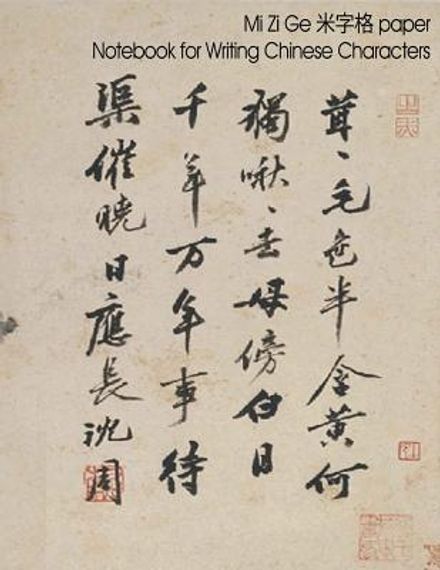 Mi Zi Ge 米字格 paper
Notebook for Writing Chinese Characters
茸、毛色半含黃何
獨啾、去母傍白日
千年万年事待
渠催曉日應長沈周